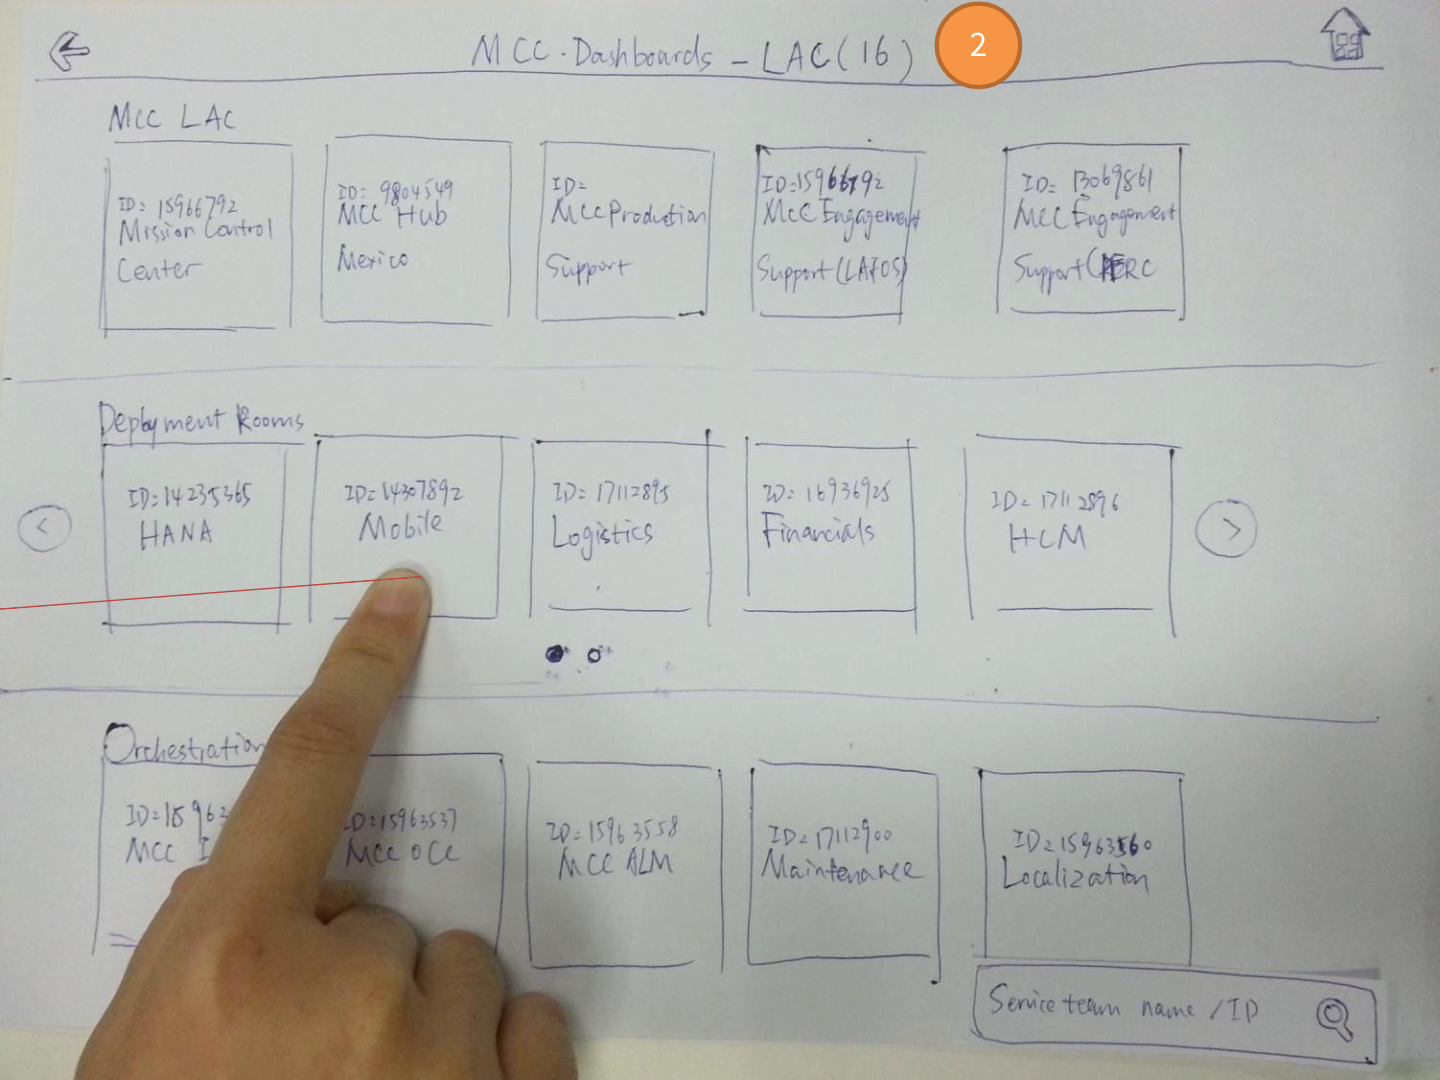 MCC - Dashboards - LAC (16)
2
MCC LAC
ID: 15966792
Mission Control
Center
ID: 9804549
MCC Hub
Mexico
ID=
MCC Production
Support
MCC Engagement
Support (LAFOS)
ID: 13069861
MCC Engagement
Support (
Deployment Rooms
ID: 14235365
HANA
ID=14307892
Mobile
ID= 17112895
Logistics
ID: 16936925
Financials
ID= 17112896
HCM
<
>
Orchestration
MCC
ID=15963537
MCC OCC
ID=15963558
MCC ALM
ID=17112900
Maintenance
ID=15963560
Localization
Service team name / ID